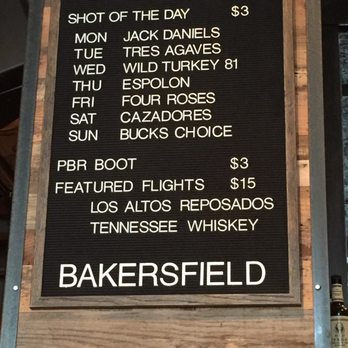 SHOT OF THE DAY $3
MON JACK DANIELS
TUE TRES AGAVES
WED WILD TURKEY 81
THU ESPOLON
FRI FOUR ROSES
SAT CAZADORES
SUN BUCKS CHOICE
PBR BOOT $3
FEATURED FLIGHTS $15
LOS ALTOS REPOSADOS
TENNESSEE WHISKEY
BAKERSFIELD